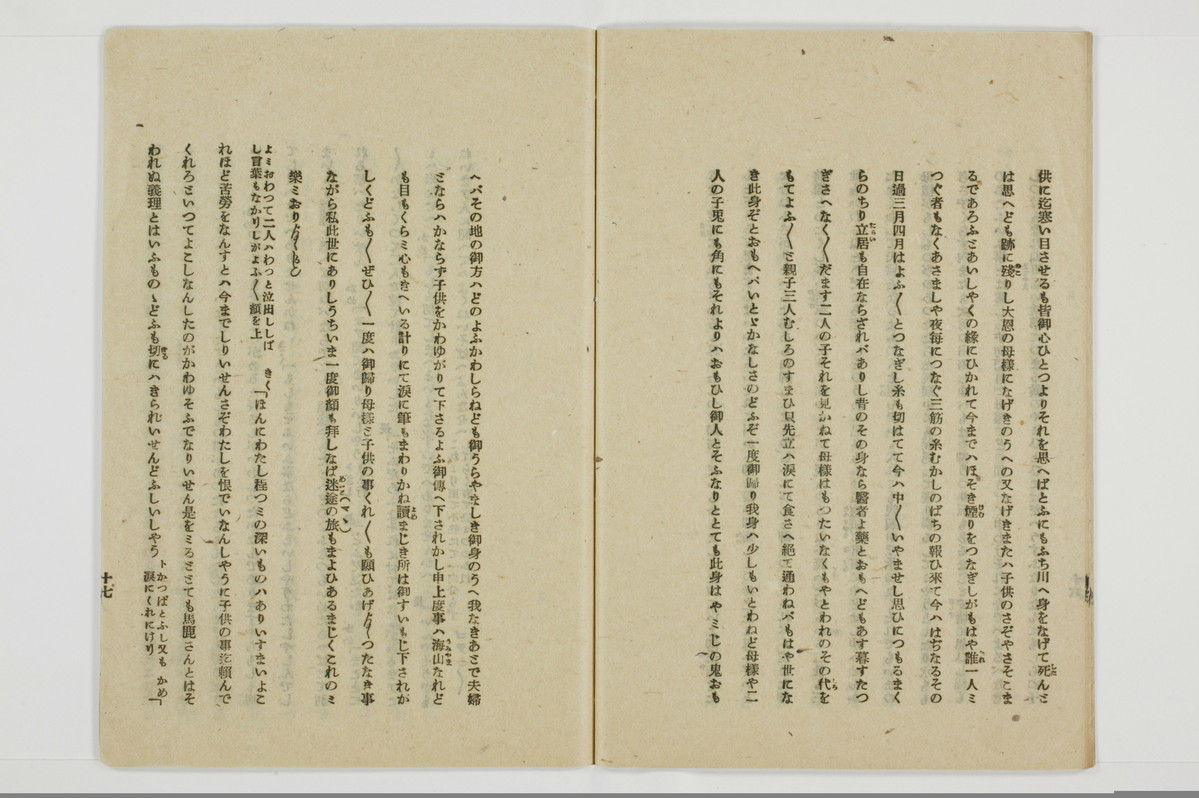 供に迄寒い目させるも皆御心ひとつよりそれを思へばとふにもふち川へ身をなげて死んミ
は思へども跡に殘りし大恩の母様になげきのうへの又なげきまたハ子供のさぞやさそこま
るであろふミあいしやくの緣にひかれて今までハほそき煙りをつなぎしがもはや誰一人ミ
つぐ者もなくあさましや夜毎につなぐ三筋の糸むかしのばちの報ひ來て今ハはぢなるその
日過三月四月はよふ〳〵とつなぎし糸も切はてて今ハ中〳〵いやませし思ひにつもるまく
らのちり立居も自在ならざれバありし昔のその身なら醫者よ藥とおもへどもあす暮すたつ
ぎさへなく〳〵だます二人の子それを見かねて母様はもつたいなくもやとわれのその代を
もてよふ〳〵ミ親子三人むしろのすまひ只先立ハ涙にて食さへ絶て通わねバもはや世にな
き此身ぞとおもへバいとゞかなしさのどふぞ一度御歸り我身ハ少しもいとわねど母様や二
人の子兎にも角にもそれよりハおもひし御人とそふなりととても此身はやミじの鬼おも
へバその地の御方ハどのよふかわしらねども御うらやましき御身のうへ我なきあミで夫婦
ミならハかならず子供をかわゆがりて下さるよふ御傳へ下されかし申上度事ハ海山なれど
も目もくらミ心もきへいる計りにて涙に筆もまわりかね讀まじき所は御すいもじ下されが
しくどふも〳〵ぜひ〳〵一度ハ御歸り母様ミ子供の事くれ〳〵も願ひあげ〳〵つたなき事
ながら私此世にありしうちいま一度御顏も拜しなば迷途の旅(マヽ)もまよひあるまじくこれのミ
樂ミおり〳〵
よミおわつて二人ハわつと泣出ししば
し言葉もなかりしがよふ〳〵顏を上 きく「ほんにわたし程つミの深いものハありいすまいよこ
れほど苦勞をなんすとハ今までしりいせんさぞわたしを恨でいなんしやうに子供の事迄賴んで
くれろミいつてよこしなんしたのがかわゆそふでなりいせん是をミるミミても馬鹿さんとはそ
われぬ義理とはいふものゝどふも切にハきられいせんどふしいしやう トかつぱとふし又も かめ「
涙にくれにけり
十七